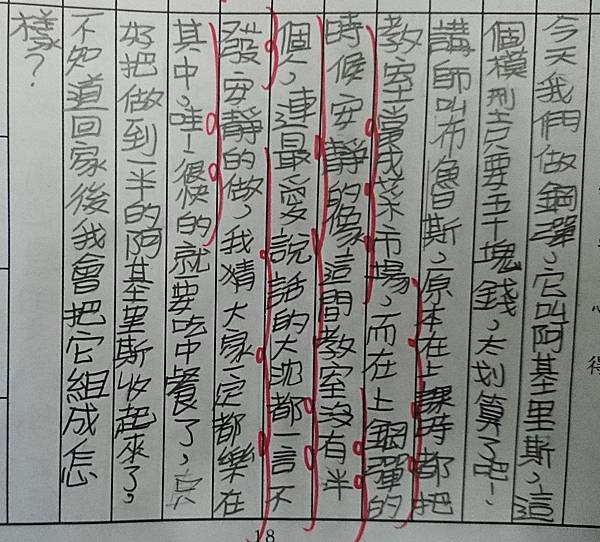 今天我們做鋼彈，它叫阿基里斯，這
個模型只要五千塊錢，太划算了吧！
講師叫布魯斯，原本在上課時都把
教室當成菜市場，而在上鋼彈的
時候安靜的像這間教室沒有半
個人，連最愛說話的大沈都一言不
發安靜的做，我猜大家一定都樂在
其中，哇！很快的就要吃中餐了，只
好把做到一半的阿基里斯收起來了，
不知道回家後我會把它組成怎
樣？
心
得
18